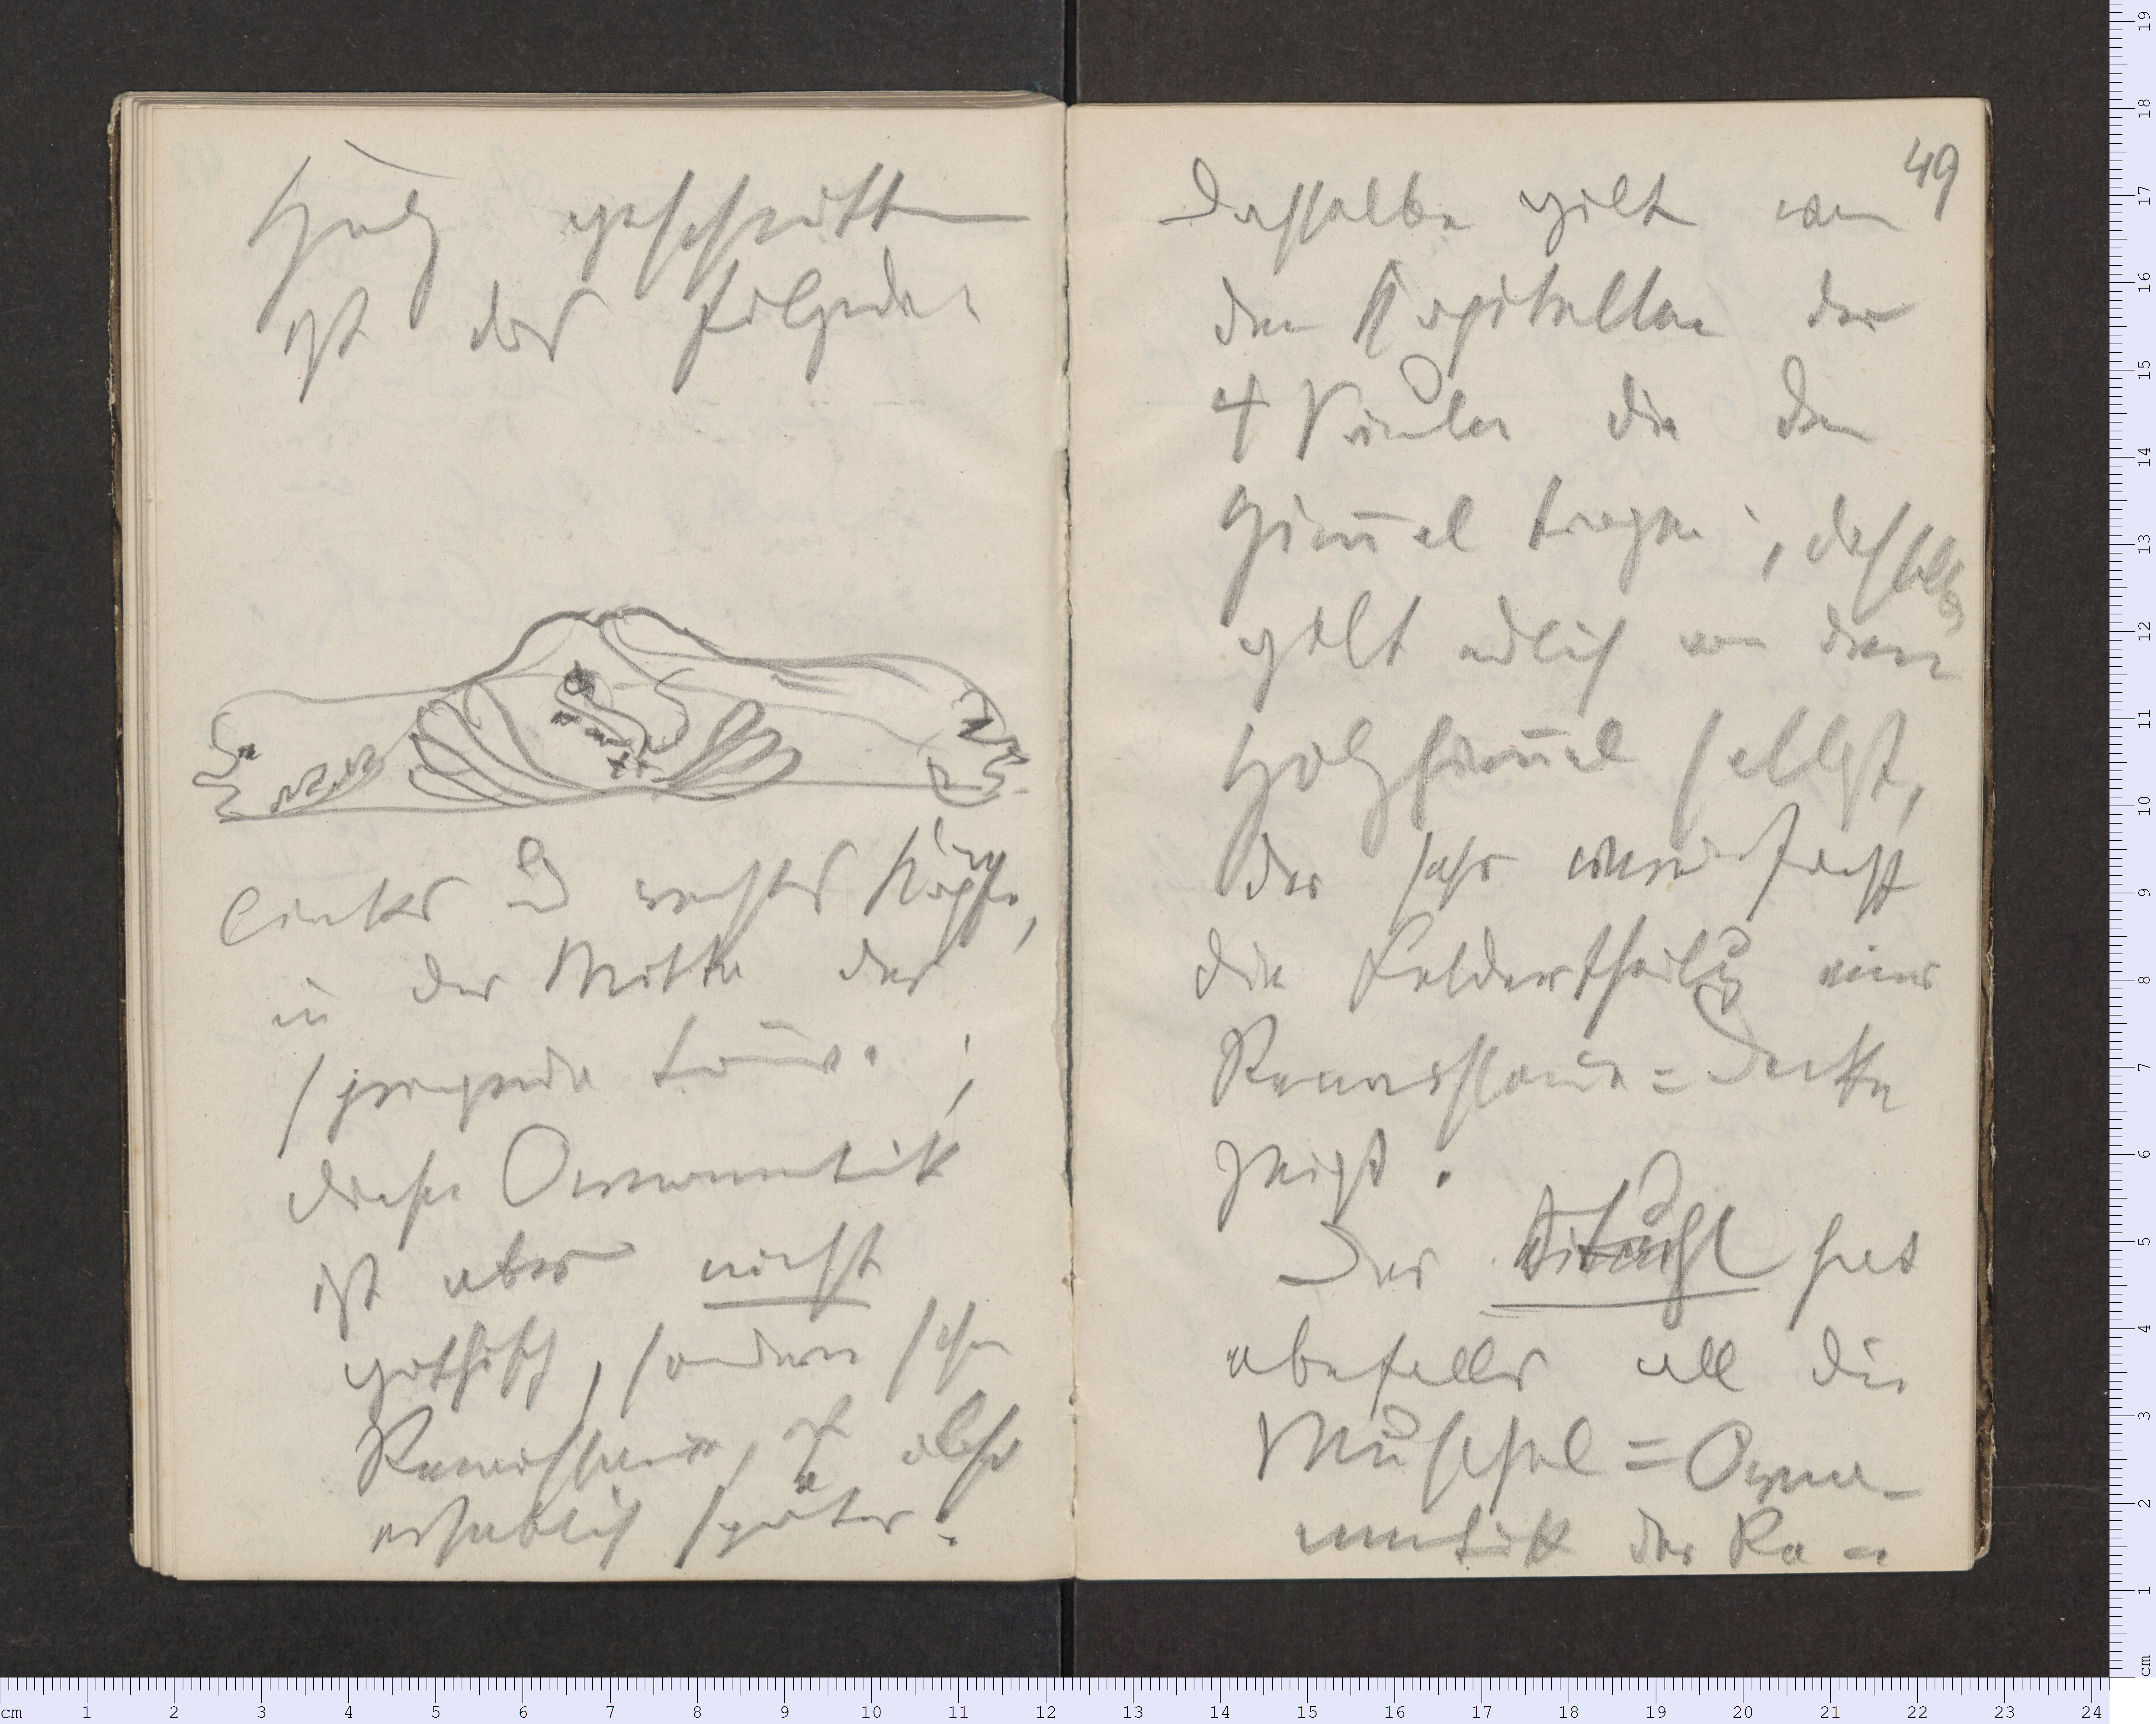 Holz geschnitten
ist das folgende:
links u rechts Köpfe,
in der Mitte der
springende Löwe;
diese Ornamentik
ist aber nicht
gothisch, sondern schon
Renaissance, ist also
erheblich später.
49
Dasselbe gilt von
den Kapitellen der
4 Säulen die den
Himel tragen; dasselbe
gilt endlich von dem
Holzhimel selbst,
der sehr
die Feldertheilug einer
Renaissance=Decke
zeigt.
Der hat
ebenfalls all die
Muschel=Orna-
mentik der Re=